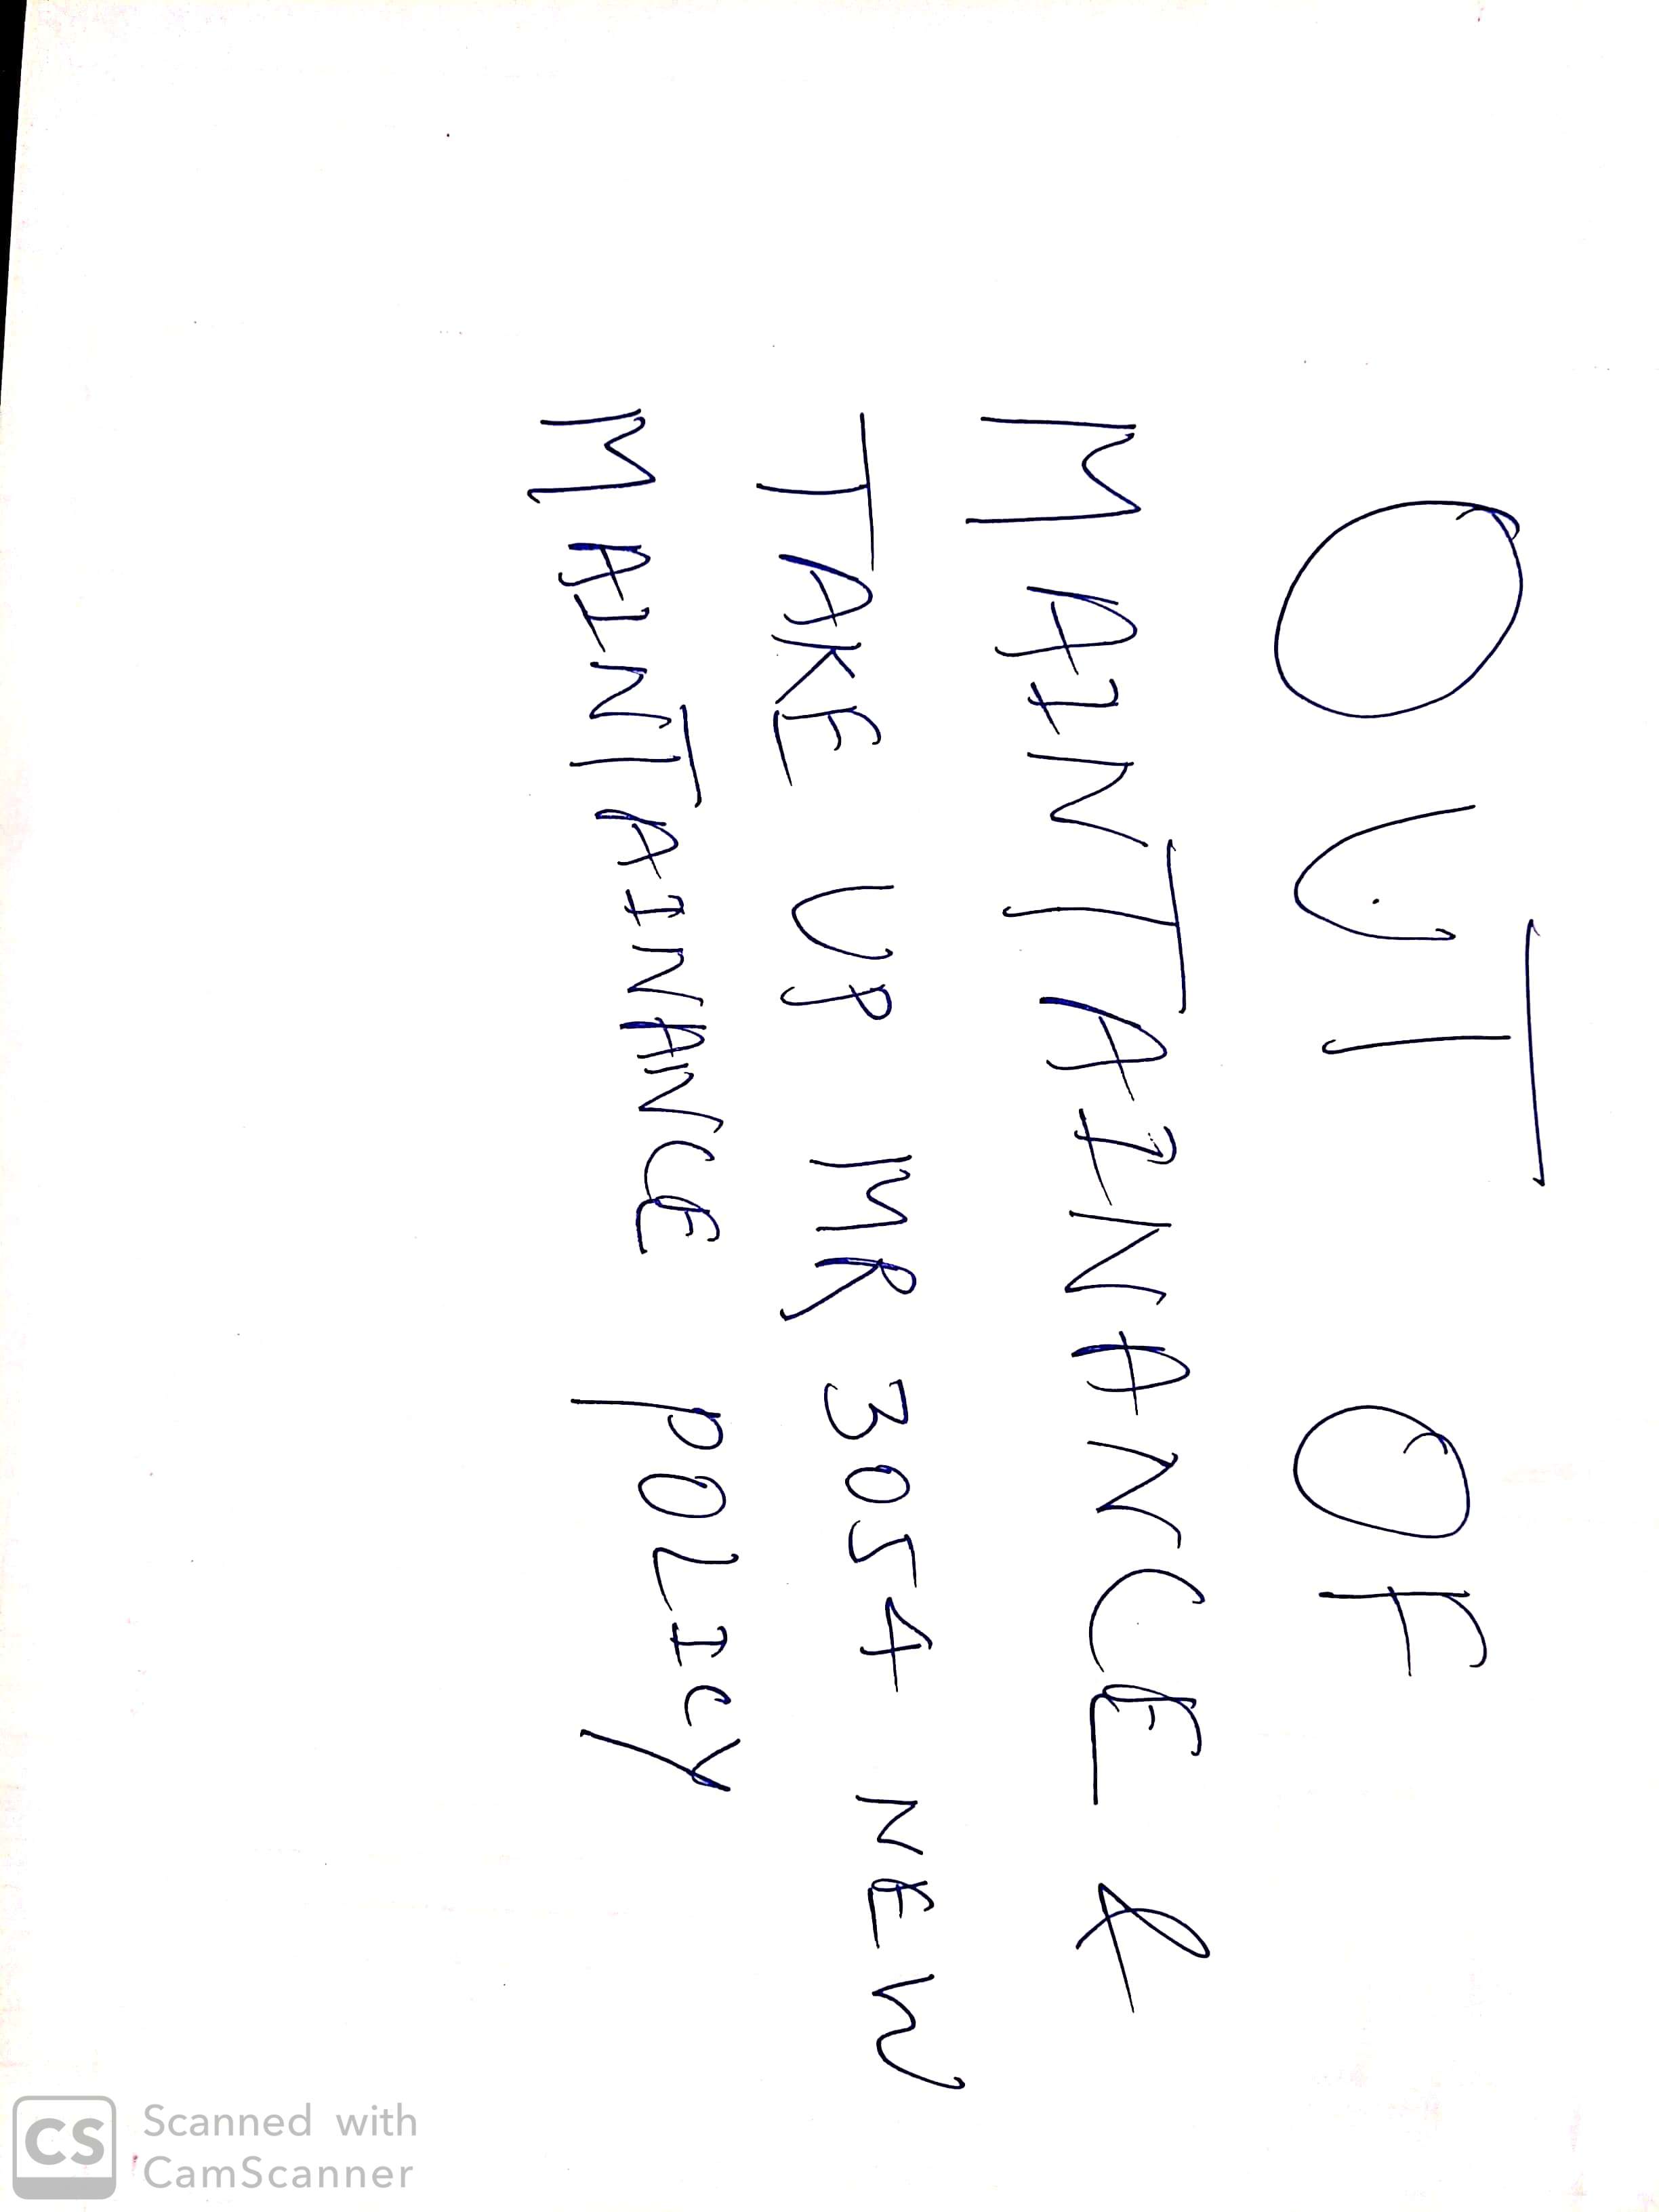 OUT OF
MAINTAINANCE &
TAKE UP MR 3054 NEW
MAINTAINANCE POLICY
CS Scanned with
CamScanner